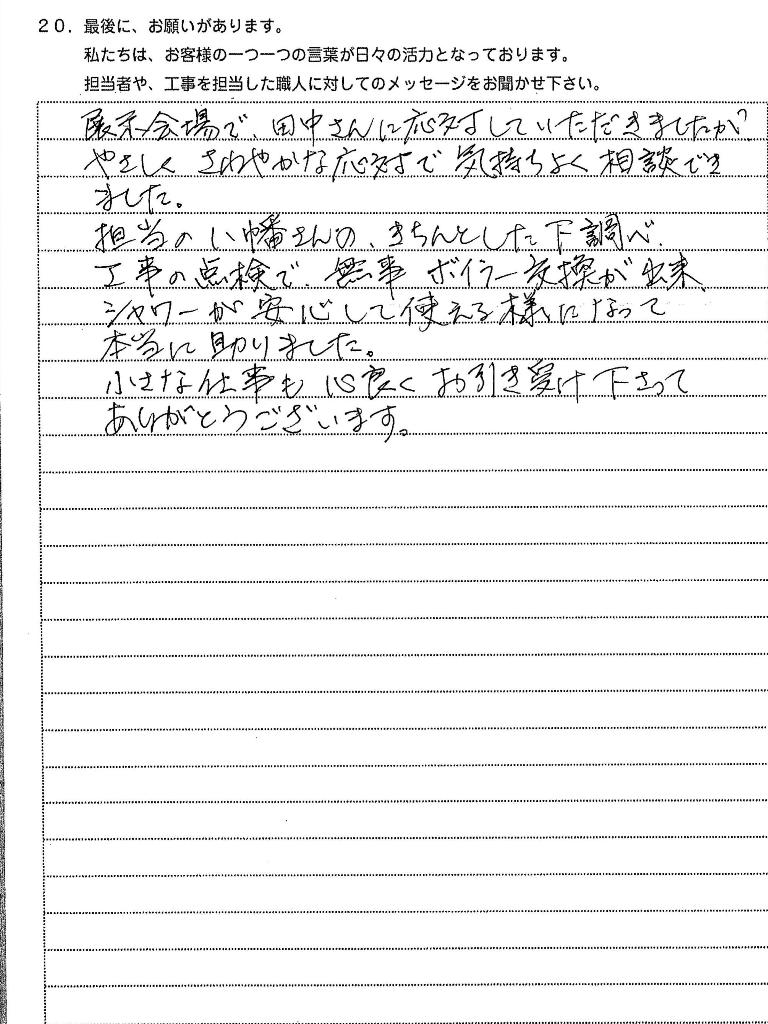 20. 最後に、お願いがあります。
私たちは、お客様の一つ一つの言葉が日々の活力となっております。
担当者や、工事を担当した職人に対してのメッセージをお聞かせ下さい。
展示会場で、田中さんに応対していただきましたが、
やさしく さわやかな応対で 気持ちよく 相談でき
ました。
担当の 八幡さんの、きちんとした下調べ、
工事の点検で、無事 ボイラー交換が出来、
シャワーが 安心して使える様になって
本当に 助りました。
小さな仕事も 心良く お引き受け下さって
ありがとうございます。